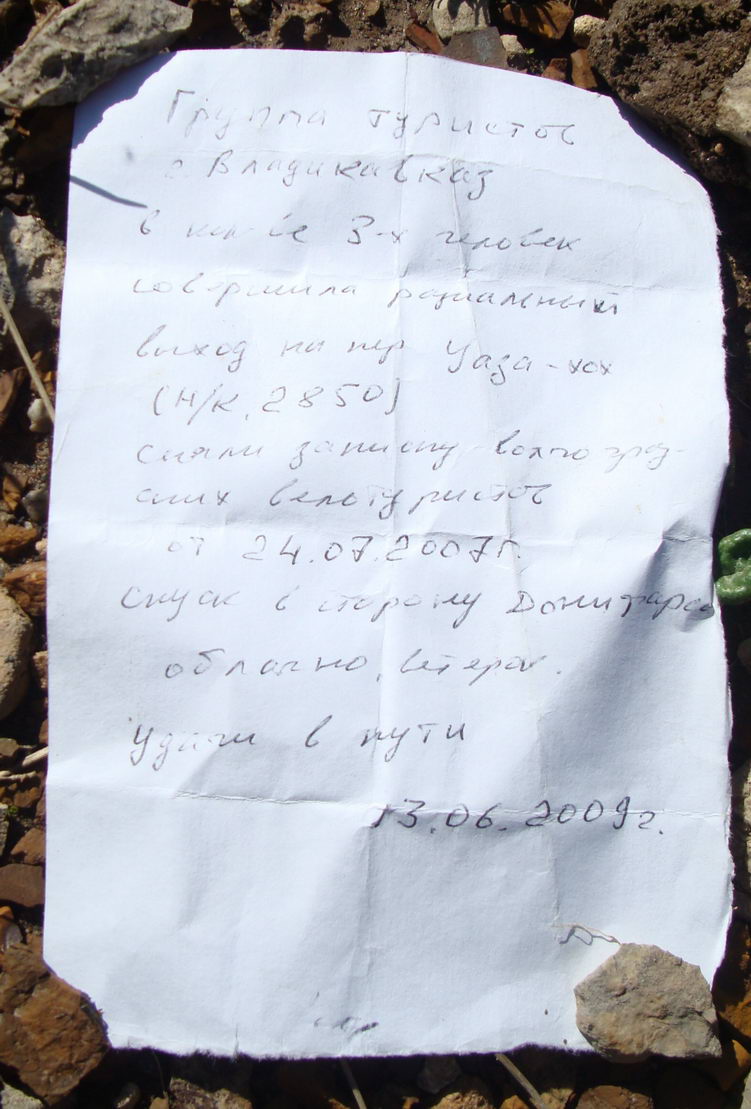 Группа туристов
г. Владикавказ
в кол-ве 3-х человек
совершила радиальный
выход на пер Уаза-хох
(Н/К, 2850)
сняли записку волгоград-
ских велотуристов
от 24.07.2007г.
Спуск в сторону Донифарса
облачно, ветер.
Удачи в пути
13.06.2009г.